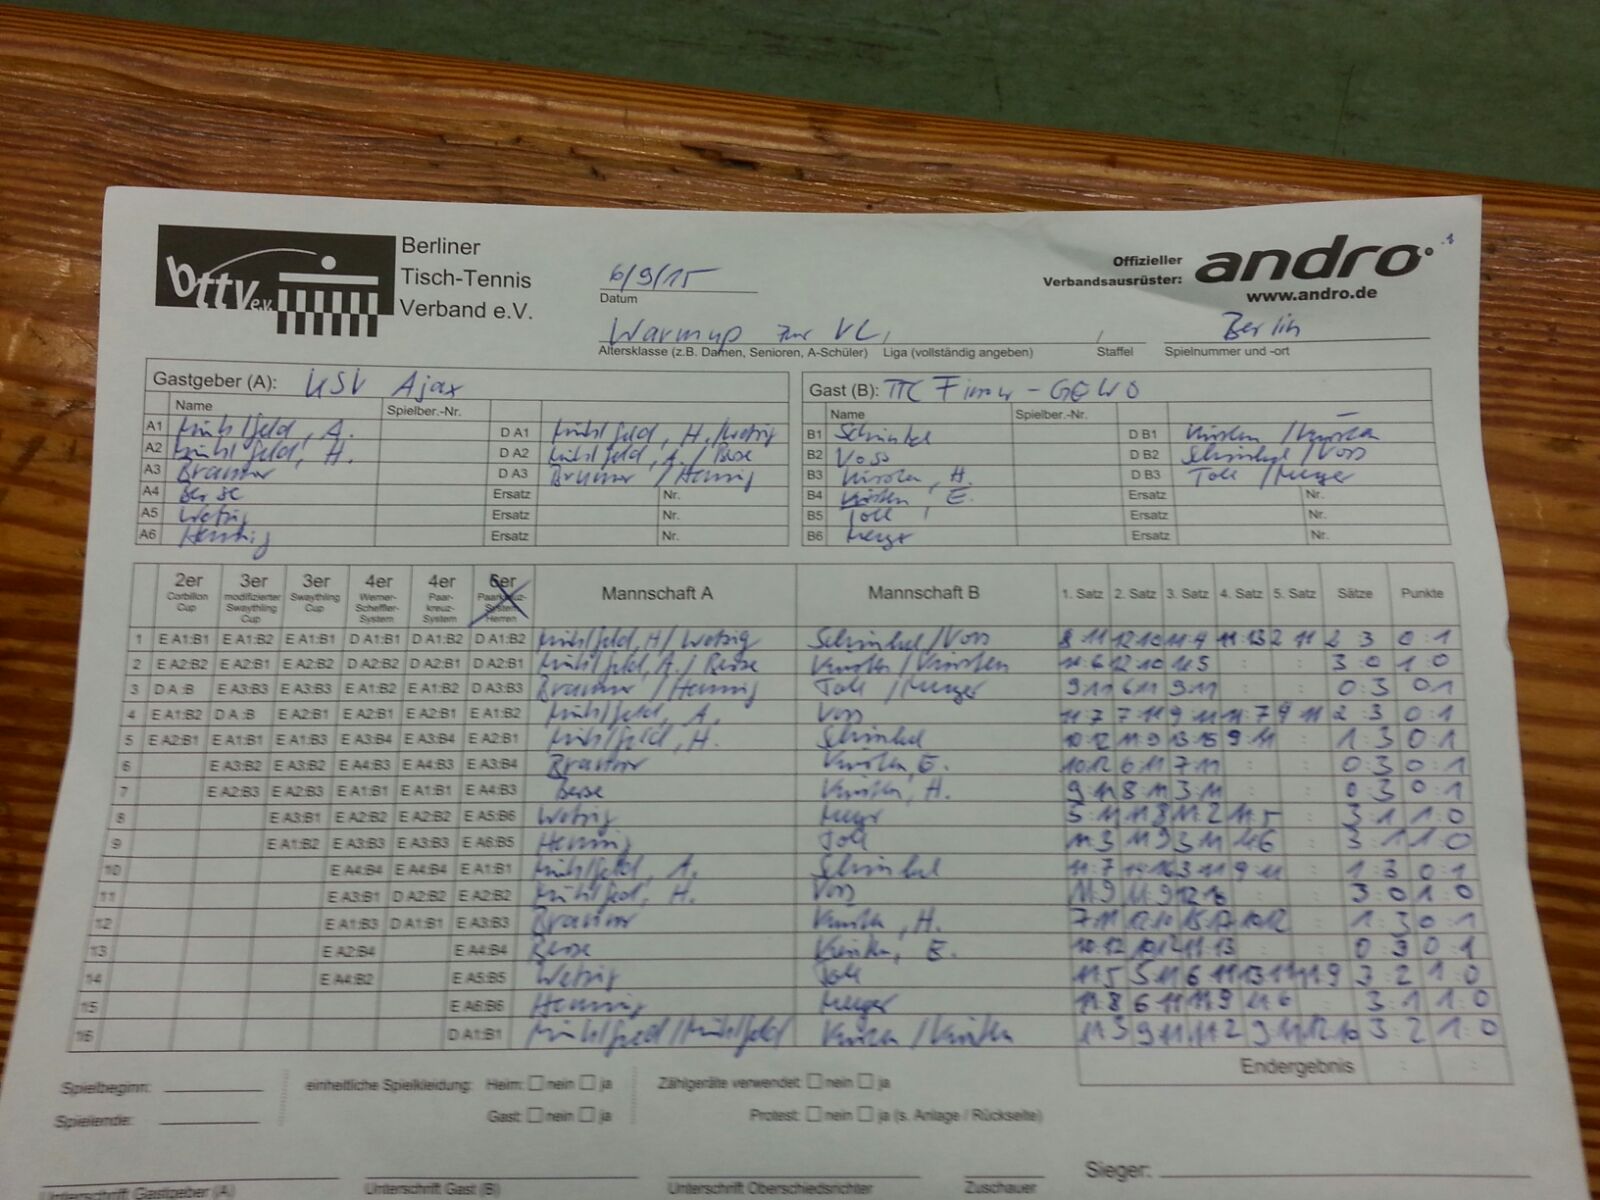 bttv e.v.
Berliner
Tisch-Tennis
Verband e.V.
6/9/15
Datum
Offizieller
Verbandsausrüster:
andro
www.andro.de
Warmup zur VL,
Berlin
Altersklasse (z.B. Damen, Senioren, A-Schüler) Liga (vollständig angeben) Staffel Spielnummer und -ort
Gastgeber (A): USV Ajax
Gast (B): TTC - GEWO
Name Spielber.-Nr.
Name Spielber.-Nr.
A1 Mühlfeld, A. D A1 Mühlfeld, H./Wetzig
B1 Schinkel D B1
A2 Mühlfeld, H. D A2 Mühlfeld, A./Besse
B2 Voss D B2 Schinkel/Voss
A3 D A3 /Hennig
B3 H. D B3
A4 Besse Ersatz Nr.
B4 E. Ersatz Nr.
A5 Wetzig Ersatz Nr.
B5 Ersatz Nr.
A6 Hennig Ersatz Nr.
B6 Ersatz Nr.
2er Corbillon Cup 3er modifizierter Swaythling Cup 3er Swaythling Cup 4er Werner-Scheffler-System 4er Paar-kreuz-System 6er Paarkreuz-System Herren Mannschaft A Mannschaft B 1. Satz 2. Satz 3. Satz 4. Satz 5. Satz Sätze Punkte
1 E A1:B1 E A1:B2 E A1:B1 D A1:B1 D A1:B2 D A1:B2 Mühlfeld, H/Wetzig Schinkel/Voss 8 11 12 10 11 4 11:13 2 11 2 3 0:1
2 E A2:B2 E A2:B1 E A2:B2 D A2:B2 D A2:B1 D A2:B1 Mühlfeld, A./Besse 11:6 12 10 11 5 3:0 1:0
3 D A:B E A3:B3 E A3:B3 E A1:B2 E A1:B2 D A3:B3 /Hennig 9 11 6 11 9 11 0:3 0 1
4 E A1:B2 D A:B E A2:B1 E A2:B1 E A2:B1 E A1:B2 Mühlfeld, A. Voss 11:7 7 11 9 11 11:7 9 11 2:3 0:1
5 E A2:B1 E A1:B1 E A1:B3 E A3:B4 E A3:B4 E A2:B1 Mühlfeld, H. Schinkel 10:12 11 9 13:15 9 11 1:3 0:1
6 E A3:B2 E A3:B2 E A4:B3 E A4:B3 E A3:B4 E. 10 12 6 11 7 11 0:3 0:1
7 E A2:B3 E A2:B3 E A1:B1 E A1:B1 E A4:B3 Besse H. 9 11 8 11 3 11 0 3 0:1
8 E A3:B1 E A2:B2 E A2:B2 E A5:B6 Wetzig 5 11 11 8 11 2 11 5 3:1 1:0
9 E A1:B2 E A3:B3 E A3:B3 E A6:B5 Hennig 11:3 11 9 3 11 3:1 1:0
10 E A4:B4 E A4:B4 E A1:B1 Mühlfeld, A. Schinkel 11:7 14 16 3 11 9 11 1:3 0:1
11 E A3:B1 D A2:B2 E A2:B2 Mühlfeld, H. Voss 11:9 11:9 12 10 3:0 1:0
12 E A1:B3 D A1:B1 E A3:B3 H. 7 11 12 10 15 17 10 12 1:3 0:1
13 E A2:B4 E A4:B4 Besse E. 10:12 10 12 11:13 0:3 0:1
14 E A4:B2 E A5:B5 Wetzig 11:5 5 11 6 11 13 11 11 9 3:2 1:0
15 E A6:B6 Hennig 11 8 6 11 11 9 11 6 3:1 1:0
16 D A1:B1 Mühlfeld/Mühlfeld 9 11 11 2 9 11 12 10 3:2 1:0
Endergebnis
Spielbeginn: einheitliche Spielkleidung: Heim: nein ja Zählgeräte verwendet: nein ja
Spielende: Gast: nein ja Protest: nein ja (s. Anlage / Rückseite)
Sieger:
Unterschrift Gastgeber (A) Unterschrift Gast (B) Unterschrift Oberschiedsrichter Zuschauer